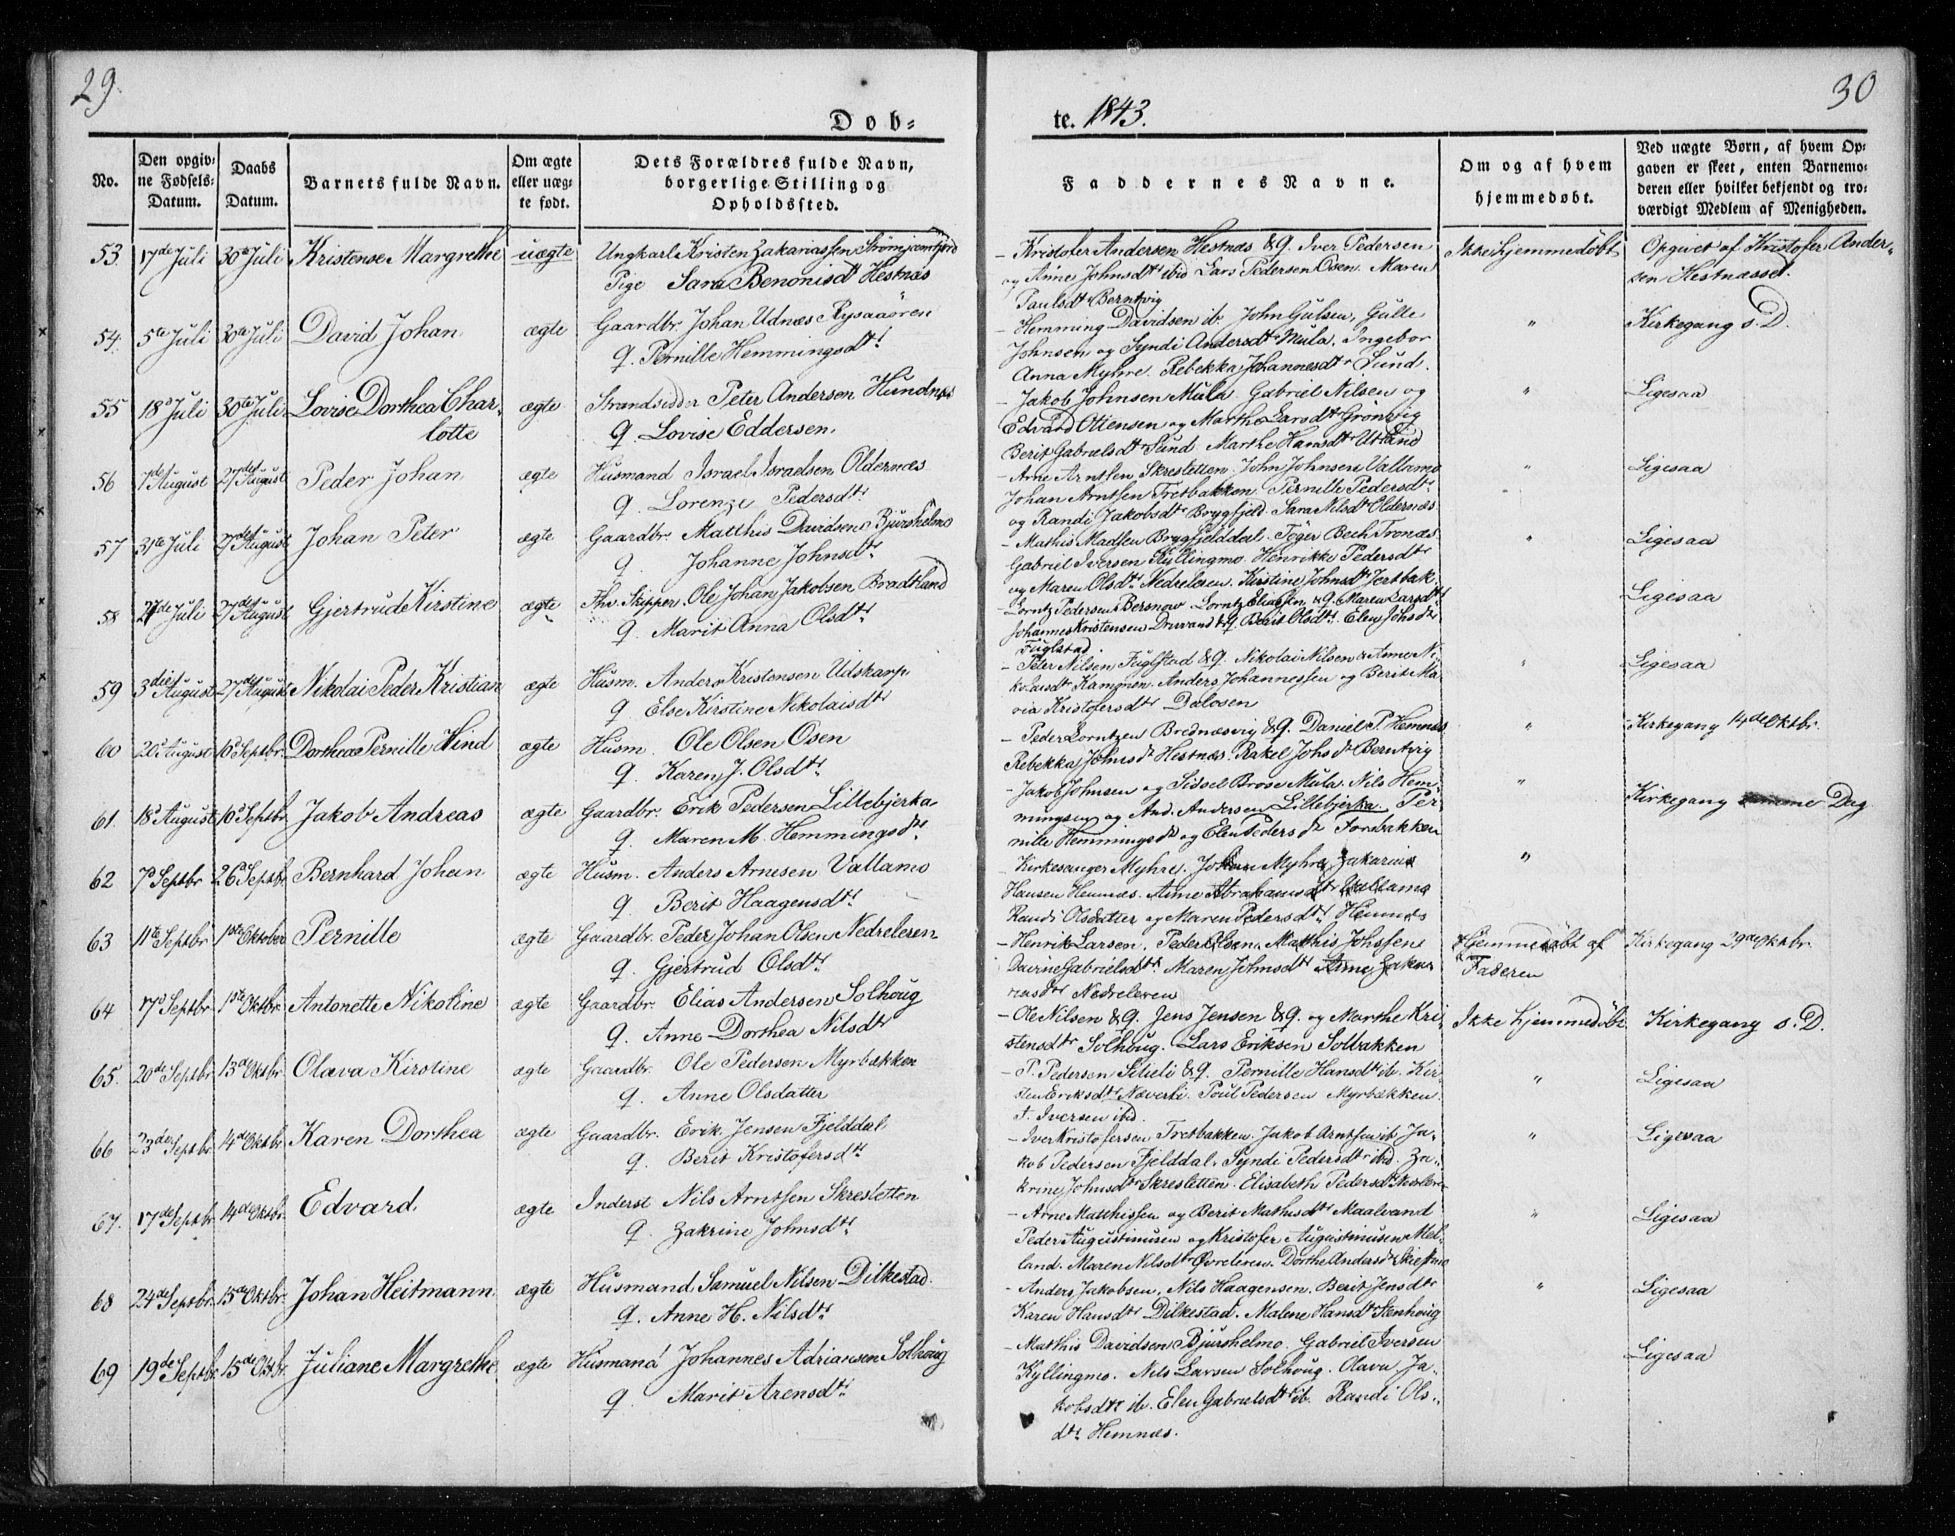 29.
30
Döb-
te. 1843.
No.
Den opgiv-
ne Fødsels-
Datum.
Daabs
Datum.
Barnets fulde Navn.
Om ægte
eller uæg-
te født.
Dets Forældres fulde Navn,
borgerlige Stilling og
Opholdssted.
Faddernes Navne.
Om og af hvem
hjemmedøbt.
Ved uægte Børn, af hvem Op-
gaven er skeet, enten Barnemo-
deren eller hvilket bekjendt og tro-
værdigt Medlem af Menigheden.
53 17de Juli 30te Juli Kristense Margrethe uægte Ungkarl Kristen Zakariassen
Pige Sara Benonisdtr Hestnæs
- Kristofer Andersen Hestnæs & q. Iver Pedersen
og Anne Johnsdtr ibid Lars Pedersen Osen. Maren
Paulsdtr Berntvig
Ikke hjemmedøbt
Opgivet af Kristofer Ander-
sen Hestnæsset.
54. 5te Juli 30te Juli David Johan ægte Gaardbr. Johan Udnæs Rysaaören
q. Pernille Hemmingsdtr
- Hemming Davidsen ib. John Gulsen, Gulle
Johnsen og Syndi Andersdtr Mula. Ingebor
Anna Myhre. Rebekka Johannesdtr Sund.
" Kirkegang s. D.
55 18d Juli 30te Juli Lovise Dorthea Char-
lotte
ægte Strandsidder Peter Andersen Hundnæs
q Lovise Eddersen.
- Jakob Johnsen Mula Gabriel Nilsen og
Edvard Ottensen og Marthe Larsdtr Grönvig
Berit Gabrielsdtr Sund Marthe Hansdtr
" Ligesaa
56 1d August 27des August Peder Johan ægte Husmand Israel Israelsen Oldernæs
q. Lorenze Pedersdtr
- Arne Arntsen Skresletten. John Johnsen Vallamo
Johan Arntsen Tretbakken. Pernille Pedersdtr
og Randi Jakobsdtr Brygfjeld. Sara Nilsdtr Oldernæs
" Ligesaa
57 31te Juli 27des August Johan Peter ægte Gaardbr. Matthis Davidsen Bjurshelmo
q Johanne Johnsdtr
- Mathis Madsen Brygfjelddal. Töger Bech Tronæs
Gabriel Iversen Kyllingmo Henrikke Pedersdtr
og Maren Olsdtr Nedreleren. Kirstine Johnsdtr
" Ligesaa
58 27de Juli 27des August Gjertrud Kirstine ægte Thv. Skipper. Ole Johan Jakobsen Bradtland
q. Marit Anna Olsdtr
- Lorntz Pedersen Bersnow Lorntz Eliassen & q. Maren Larsdtr
Johannes Kristensen & q. Berit Olsdtr. Elen Johsdtr
Fuglstad
Ligesaa
59 3die August 27des August Nikolai Peder Kristian ægte Husm. Anders Kristensen Udskarp
q Else Kirstine Nikolaisdtr
- Peter Nilsen Fuglstad & q. Nikolai Nilsen & Anne Ni-
kolaisdtr Kammen. Anders Johannessen og Berit Ma-
ria Kristofersdtr Dalosen
" Ligesaa
60 20d August 10d Septbr. Dorthea Pernille Hind ægte Husm. Ole Olsen Osen
q. Karen J. Olsdtr.
- Peder Lorntzen Brednæsvig & q. Daniel P. Hemnæs
Rebekka Johnsdr Hestnæs. Rakel Johsdr Berntvig
" Kirkegang 14de Oktbr.
61. 18d August 10d Septbr. Jakob Andreas ægte Gaardbr. Erik Pedersen Lillebjerka
q. Maren M. Hemmingsdtr
- Jakob Johnsen og Sidsel Brose Mula. Nils Hem-
mingsen og And. Andersen Lillebjerka Per-
nille Hemmingsdr og Elen Pedersdr Forsbakken
" Kirkegang samme Dag
62 7d Septbr 26d Septbr. Bernhard Johan ægte Husm. Anders Arnesen Vallamo
q. Berit Haagensdtr
- Kirkesanger Myhre. Johan Myhre, Zakarias
Hansen Hemnæs. Anne Abrahamsdtr Vallamo
Randi Olsdatter og Maren Pedersdtr Hemnæs
"
63 11te Septbr 1ste Oktober Pernille ægte Gaardbr. Peder Johan Olsen Nedreleren
q. Gjertrud Olsdtr.
- Henrik Larsen. Peder Olsen. Mathis Johssen
Davine Gabrielsdtr. Maren Johnsdtr Anne Zaka-
riasdtr Nedreleren
Hjemmedøbt af
Faderen
Kirkegang 29de Oktbr.
64 17d Septbr 1ste Oktbr. Antonette Nikoline ægte Gaardbr. Elias Andersen Solhoug
q. Anne Dorthea Nilsdtr
- Ole Nilsen & q. Jens Jensen & q. og Marthe Kri-
stensdtr Solhoug. Lars Eriksen Solbakken
Ikke hjemmedøbt Kirkegang s. D.
65. 20de Septbr 13de Oktbr. Olava Kirstine ægte Gaardbr. Ole Pedersen Myrbækken
q. Anne Olsdatter
- P. Pedersen & q. Pernille Hansdtr ib. Kir-
sten Eriksdtr Poul Pedersen Myrbækken.
T. Iversen ibd.
" Ligesaa
66 23des Septbr. 14de Oktbr. Karen Dorthea ægte Gaardbr. Erik Jensen Fjelddal
q. Berit Kristofersdtr
- Iver Kristofersen Tretbakken Jakob Arntsen ib. Ja-
kob Pedersen Fjelddal. Syndi Pedersdtr ibd. Za-
krine Johnsdtr Skresletten. Elisabeth Pedersd
" Ligesaa
67. 17de Septbr. 14de Oktbr. Edvard. ægte Inderst Nils Arntsen Skresletten
q. Zakrine Johnsdtr
- Arne Matthissen og Berit Mathisdtr Maalvand
Peder Augustinusen og Kristofer Augustinusen Mel-
land. Maren Nilsdtr Øvreleren. Dorthe Andersdr
" Ligesaa
68 24de Septbr. 15de Oktbr. Johan Heitmann. ægte Husmand Samuel Nilsen Dilkestad.
q. Anne H. Nilsdtr
- Anders Jakobsen. Nils Haagensen. Berit Jensdtr
Karen Hansdtr Dilkestad. Malene Hansdtr Stenhoug
" Ligesaa
69 19de Septbr. 15de Oktbr. Juliane Margrethe. ægte Husmand Johannes Adriansen Solhoug
q. Marit Arensdtr
- Matthis Davidsen Bjurshelmo. Gabriel Iversen
Kyllingmo. Nils Larsen Solhoug. Olava Ja-
kobsdtr ib. Elen Gabrielsdtr ib. Randi Ols-
dtr Hemnæs.
Ligesaa